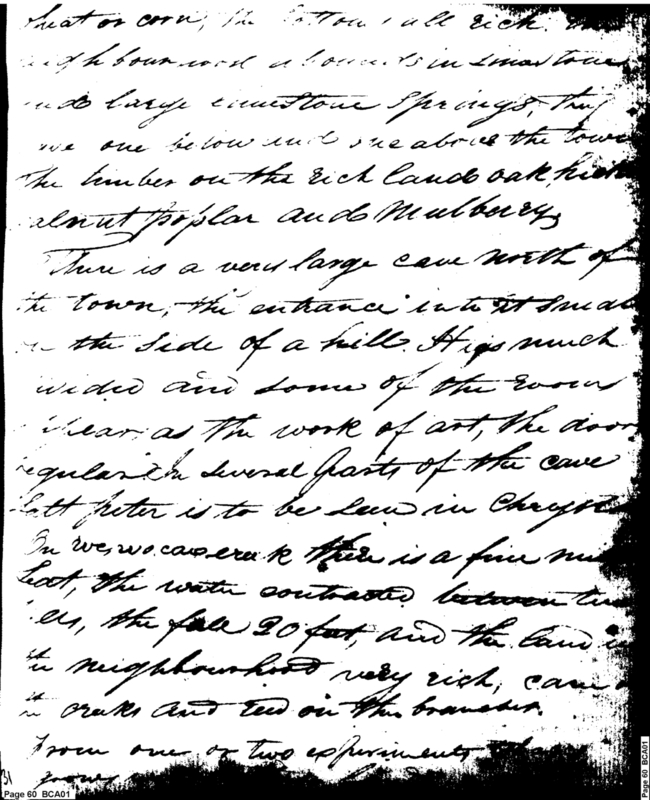 wheat or corn; the bottoms all rich. The
neighbourhood abounds in limestone
and large limestone springs, they
have one below and one above the town
The timber on the rich land oak, hick
walnut poplar and Mulberry,
There is a very large cave North of
the town, the entrance into it small
on the side of a hill. It is much
divided and some of the rooms
appear as the work of art, the doors
regular in several parts of the cave
Salt peter is to be seen in Chrysta
On wewocau creak there is a fine mill
Seat, the water contracted between two
hills, the fall 20 feet, and the land in
the neighbourhood very rich, cane on
the creaks and reed on the branches.
From one or two experiments the
31 grows
Page 60 BCA01
Page 60 BCA01